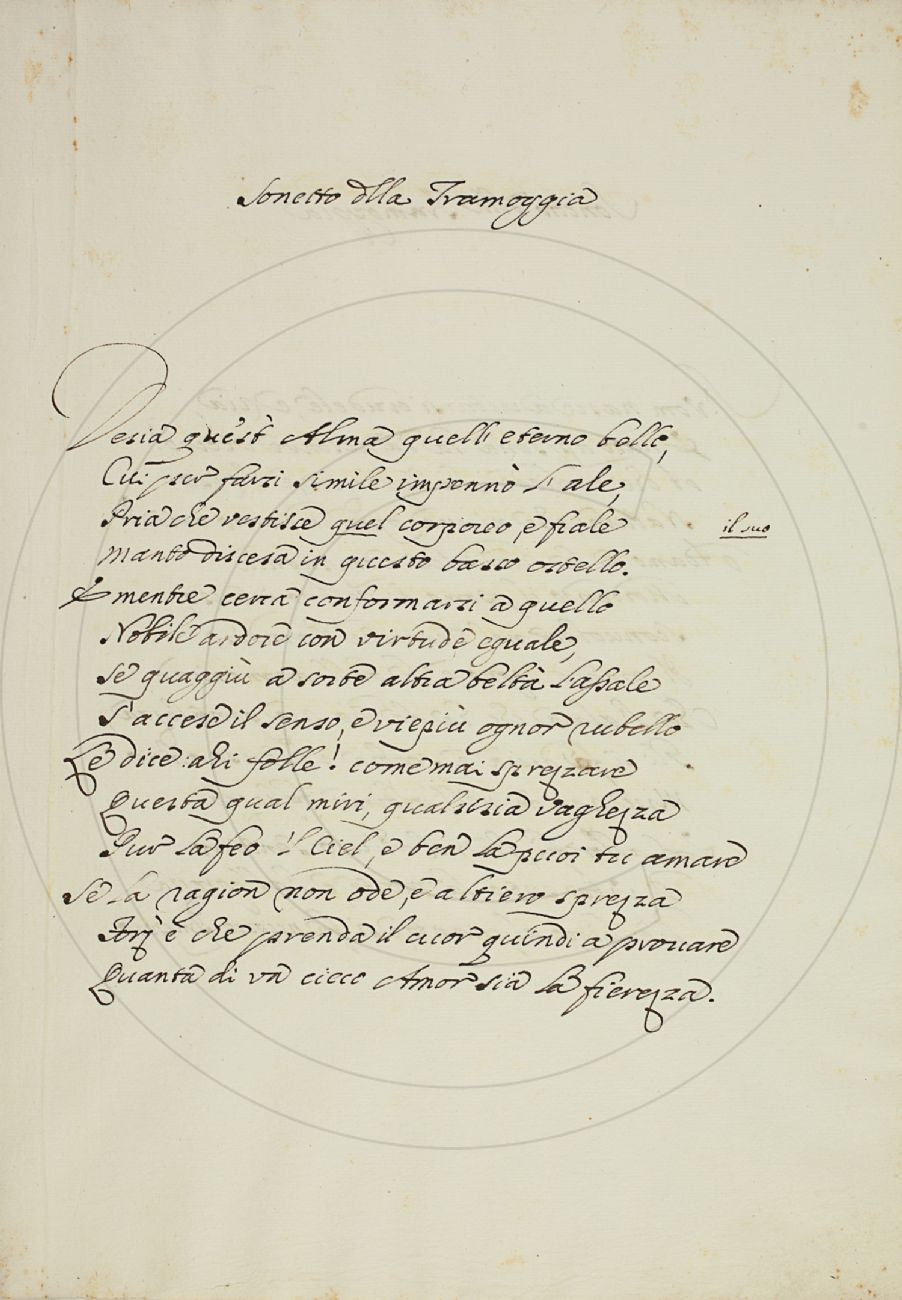 Sonetto dlla Tramoggia
Vedia quest' Alma quell' eterno bello,
Cui per farsi simile impennò l'ale,
Pria che vestisse quel corporeo, e frale
il suo
manto discesa in questo basso ostello.
E mentre cerca conformarsi a quello
Nobile ardore con virtude eguale,
Se quaggiù a sorte altra beltà l'assale
S'accese il senso, e viepiù ognor rubello
Le dice: ahi folle! come mai sprezzare
Questa qual miri, qualsisia vaghezza
Pur la feo 'l Ciel, e ben la puoi tu amare
Se la ragion non ode, e altiero sprezza
Forz' è che prenda il cuor quindi a provare
Quanta di un cieco Amor sia la fierezza.